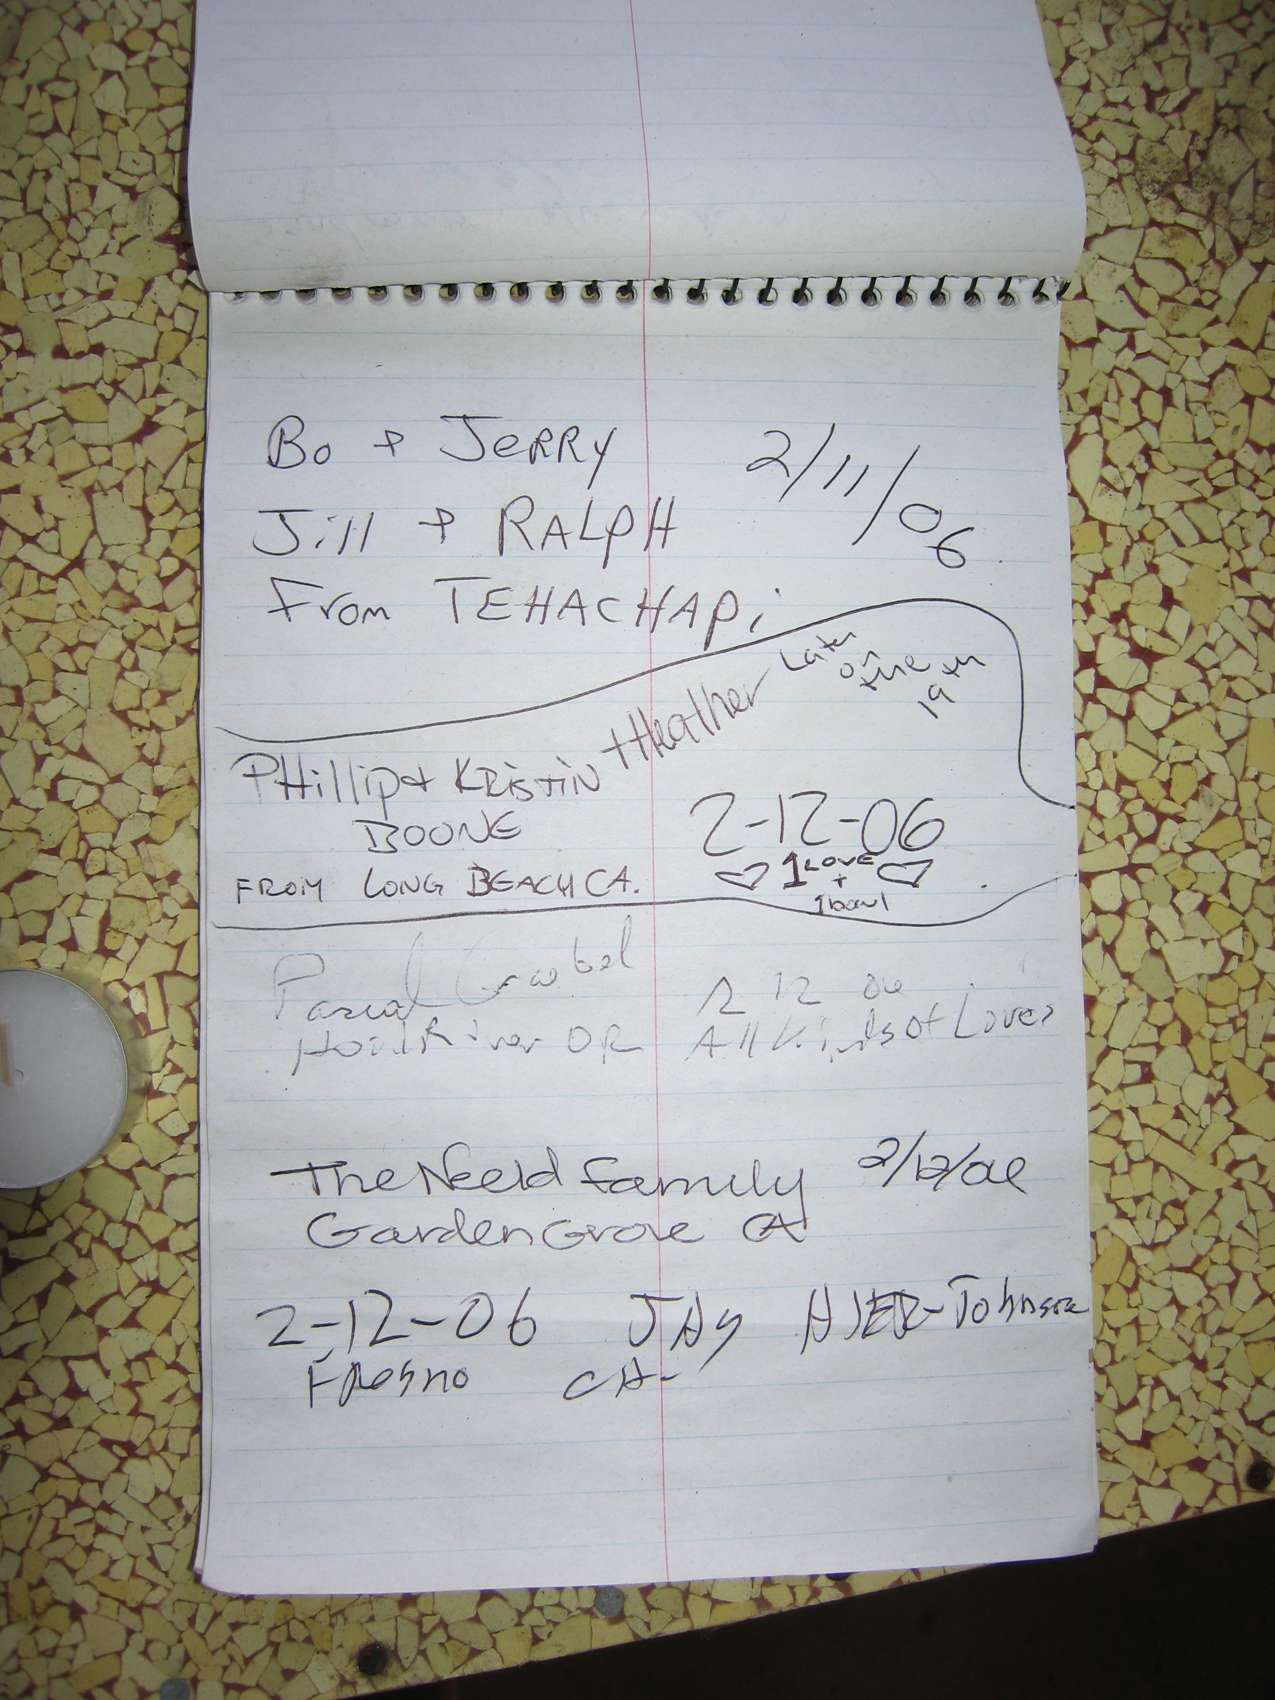 Bo + JERRY 2/11/06
Jill + RALPH
From TEHACHAPi
Later
on
the
19th
PHillip + KRISTIN + Heather
BOONE 2-12-06
♡ 1 LOVE ♡
+
FROM LONG BEACH CA. 1 bowl
Pascal 2 12 06
Hood River OR All Kinds of Love
The Neeld Family 2/12/06
Garden Grove CA
2-12-06 JAy Johnson
Fresno CA-